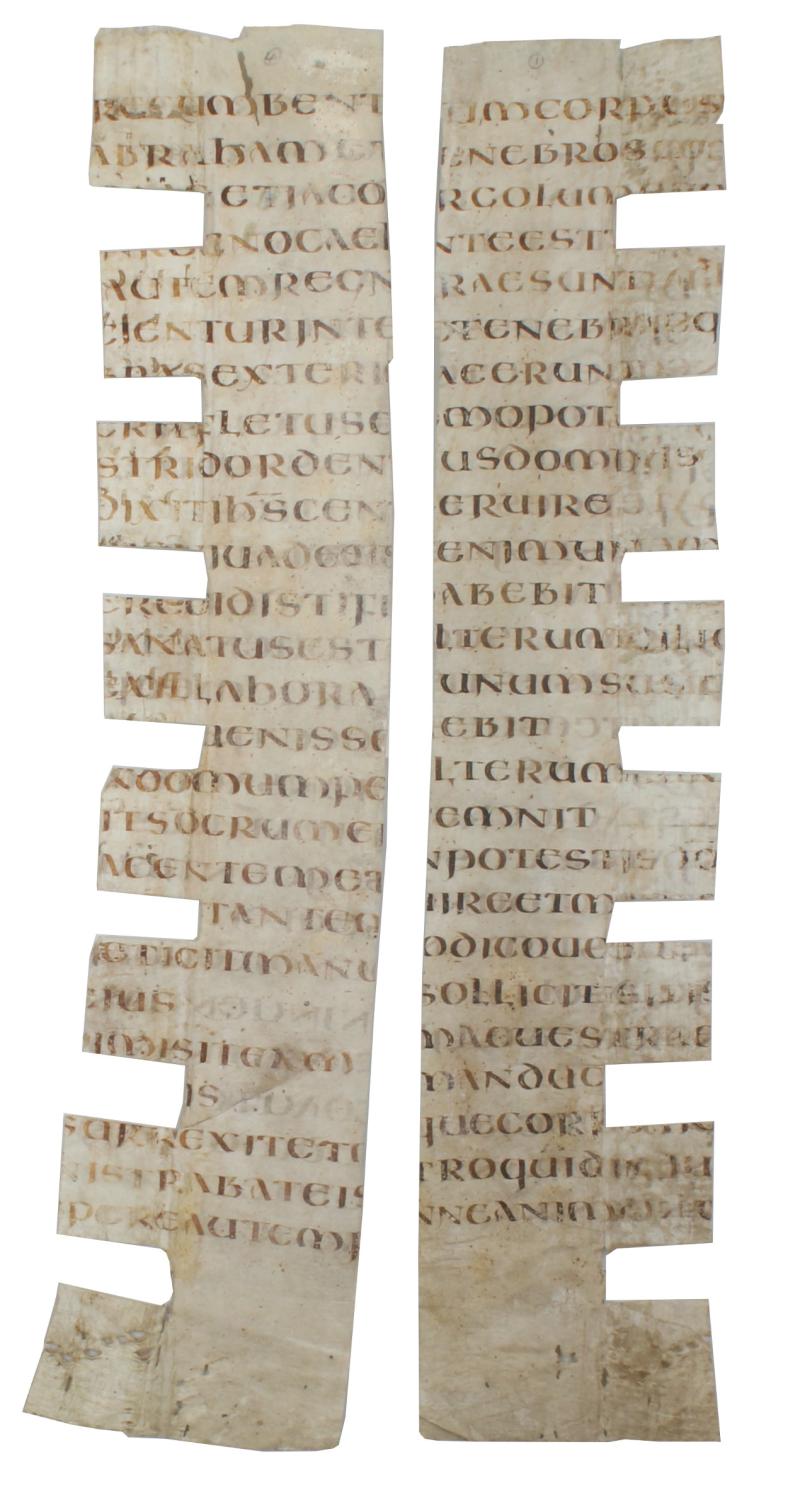 RECUMBENT
ABRAHAMET
ETIACO
NOCAEL
AUTEMREGN
EICIENTURINTE
BRASEXTERI
ERITFLETUSE
STRIDORDEN
DIXITIHSCEN
UADEETSI
CREDIDISTIFI
SANATUSEST
EXILLAHORA
UENISSE
INDOMUMPE
ITSOCRUMEI
IACENTEMET
TANTEM
ETTIGITMANU
EIUS
DIMISITEAM
IS
SURREXITET
NISTRABATEIS
SPEREAUTEM
UMCORPUS
ENEBROS
RGOLUM
NTEEST
RAESUNT
TENEBRAEQ
ACERUNT
MOPOT
USDOMINIS
ERUIRE
ENIMUN
ABEBIT
LTERUM
UNUMSUS
EBIT
LTERUM
EMNIT
NPOTESTIS
UIREETM
ODICOUO
SOLLICITI
MAEUESTRAE
MANDUC
QUECOR
TROQUID
NNEANIM